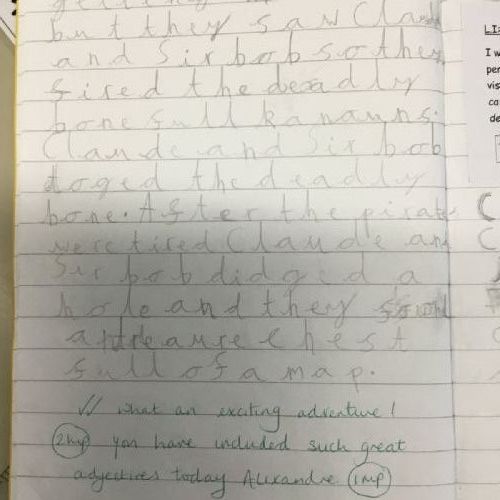 but they saw Claude
and Sir bob so they
fired the deadly
bone full kanauns.
Claude and Sir bob
doged the deadly
bone. After the pirates
were tired Claude and
Sir bob didged a
hole and they
a treaure chest
full of a map.
✓✓ what an exciting adventure!
2hp you have included such great
adjectives today Alexandre 1hp
LI:
I w
per
vis
ca
de